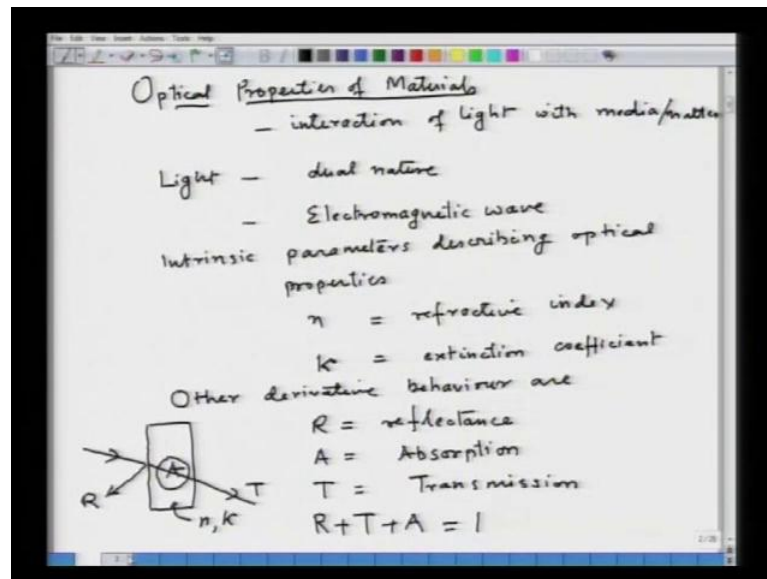 File Edit View Insert Actions Tools Help
Optical Properties of Materials
– interaction of light with media/matter
Light – dual nature
– Electromagnetic wave
Intrinsic parameters describing optical
properties
n = refractive index
k = extinction coefficient
Other derivative behaviour are
R = reflectance
A = Absorption
T = Transmission
R+T+A = 1
A
R
T
n, k